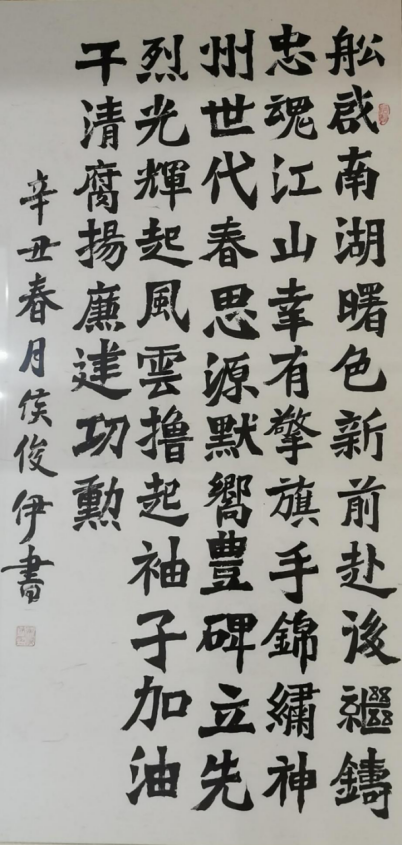 舩啟南湖曙色新前赴後繼鑄
忠魂江山幸有擎旗手錦繡神
州世代春思源默嚮豊碑立先
烈光輝起風雲擼起袖子加油
干清腐揚廉建功勳
辛丑春月侯俊伊書